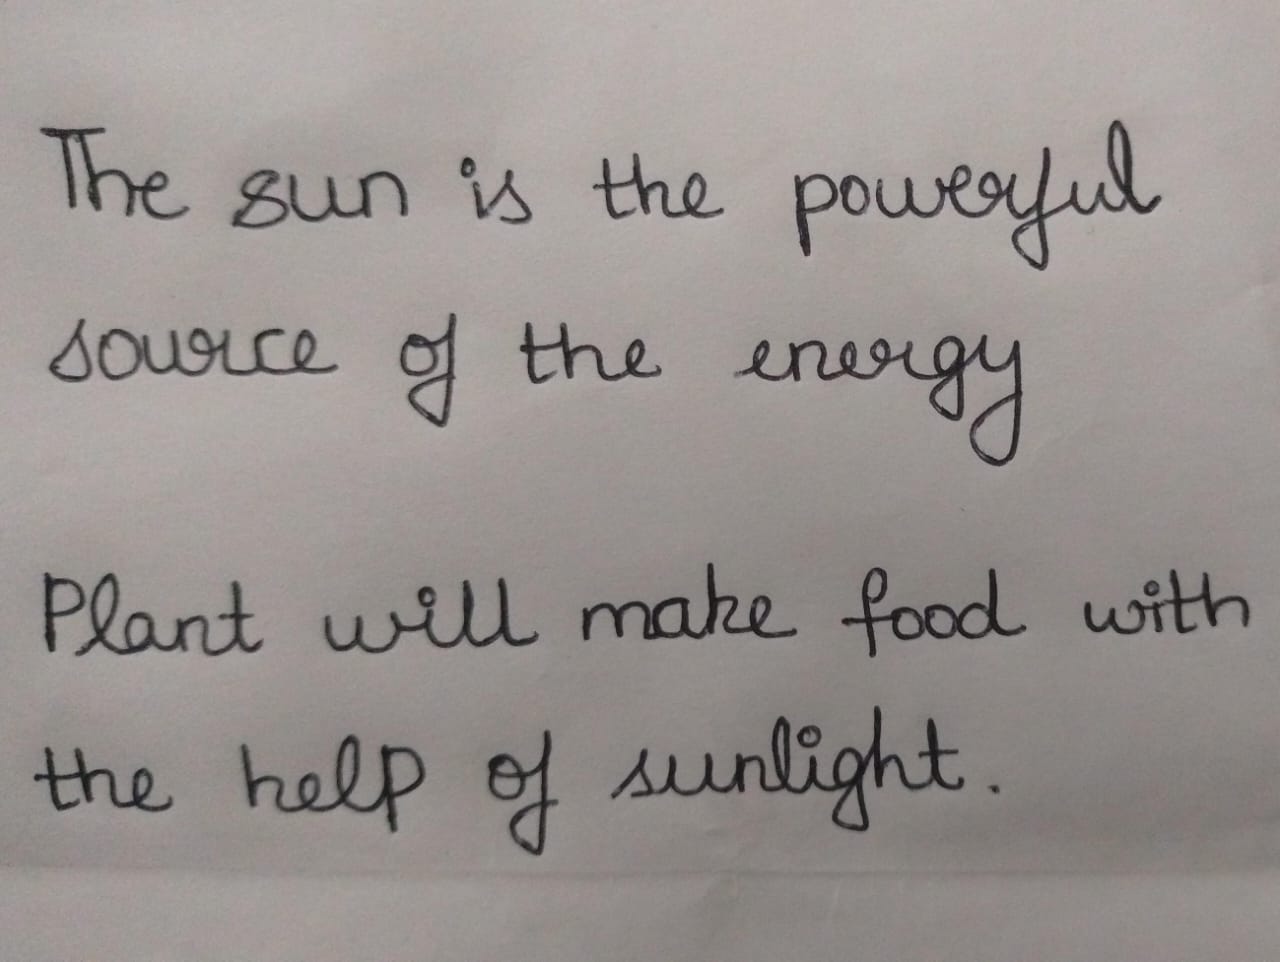 The sun is the powerful
source of the energy
Plant will make food with
the help of sunlight.